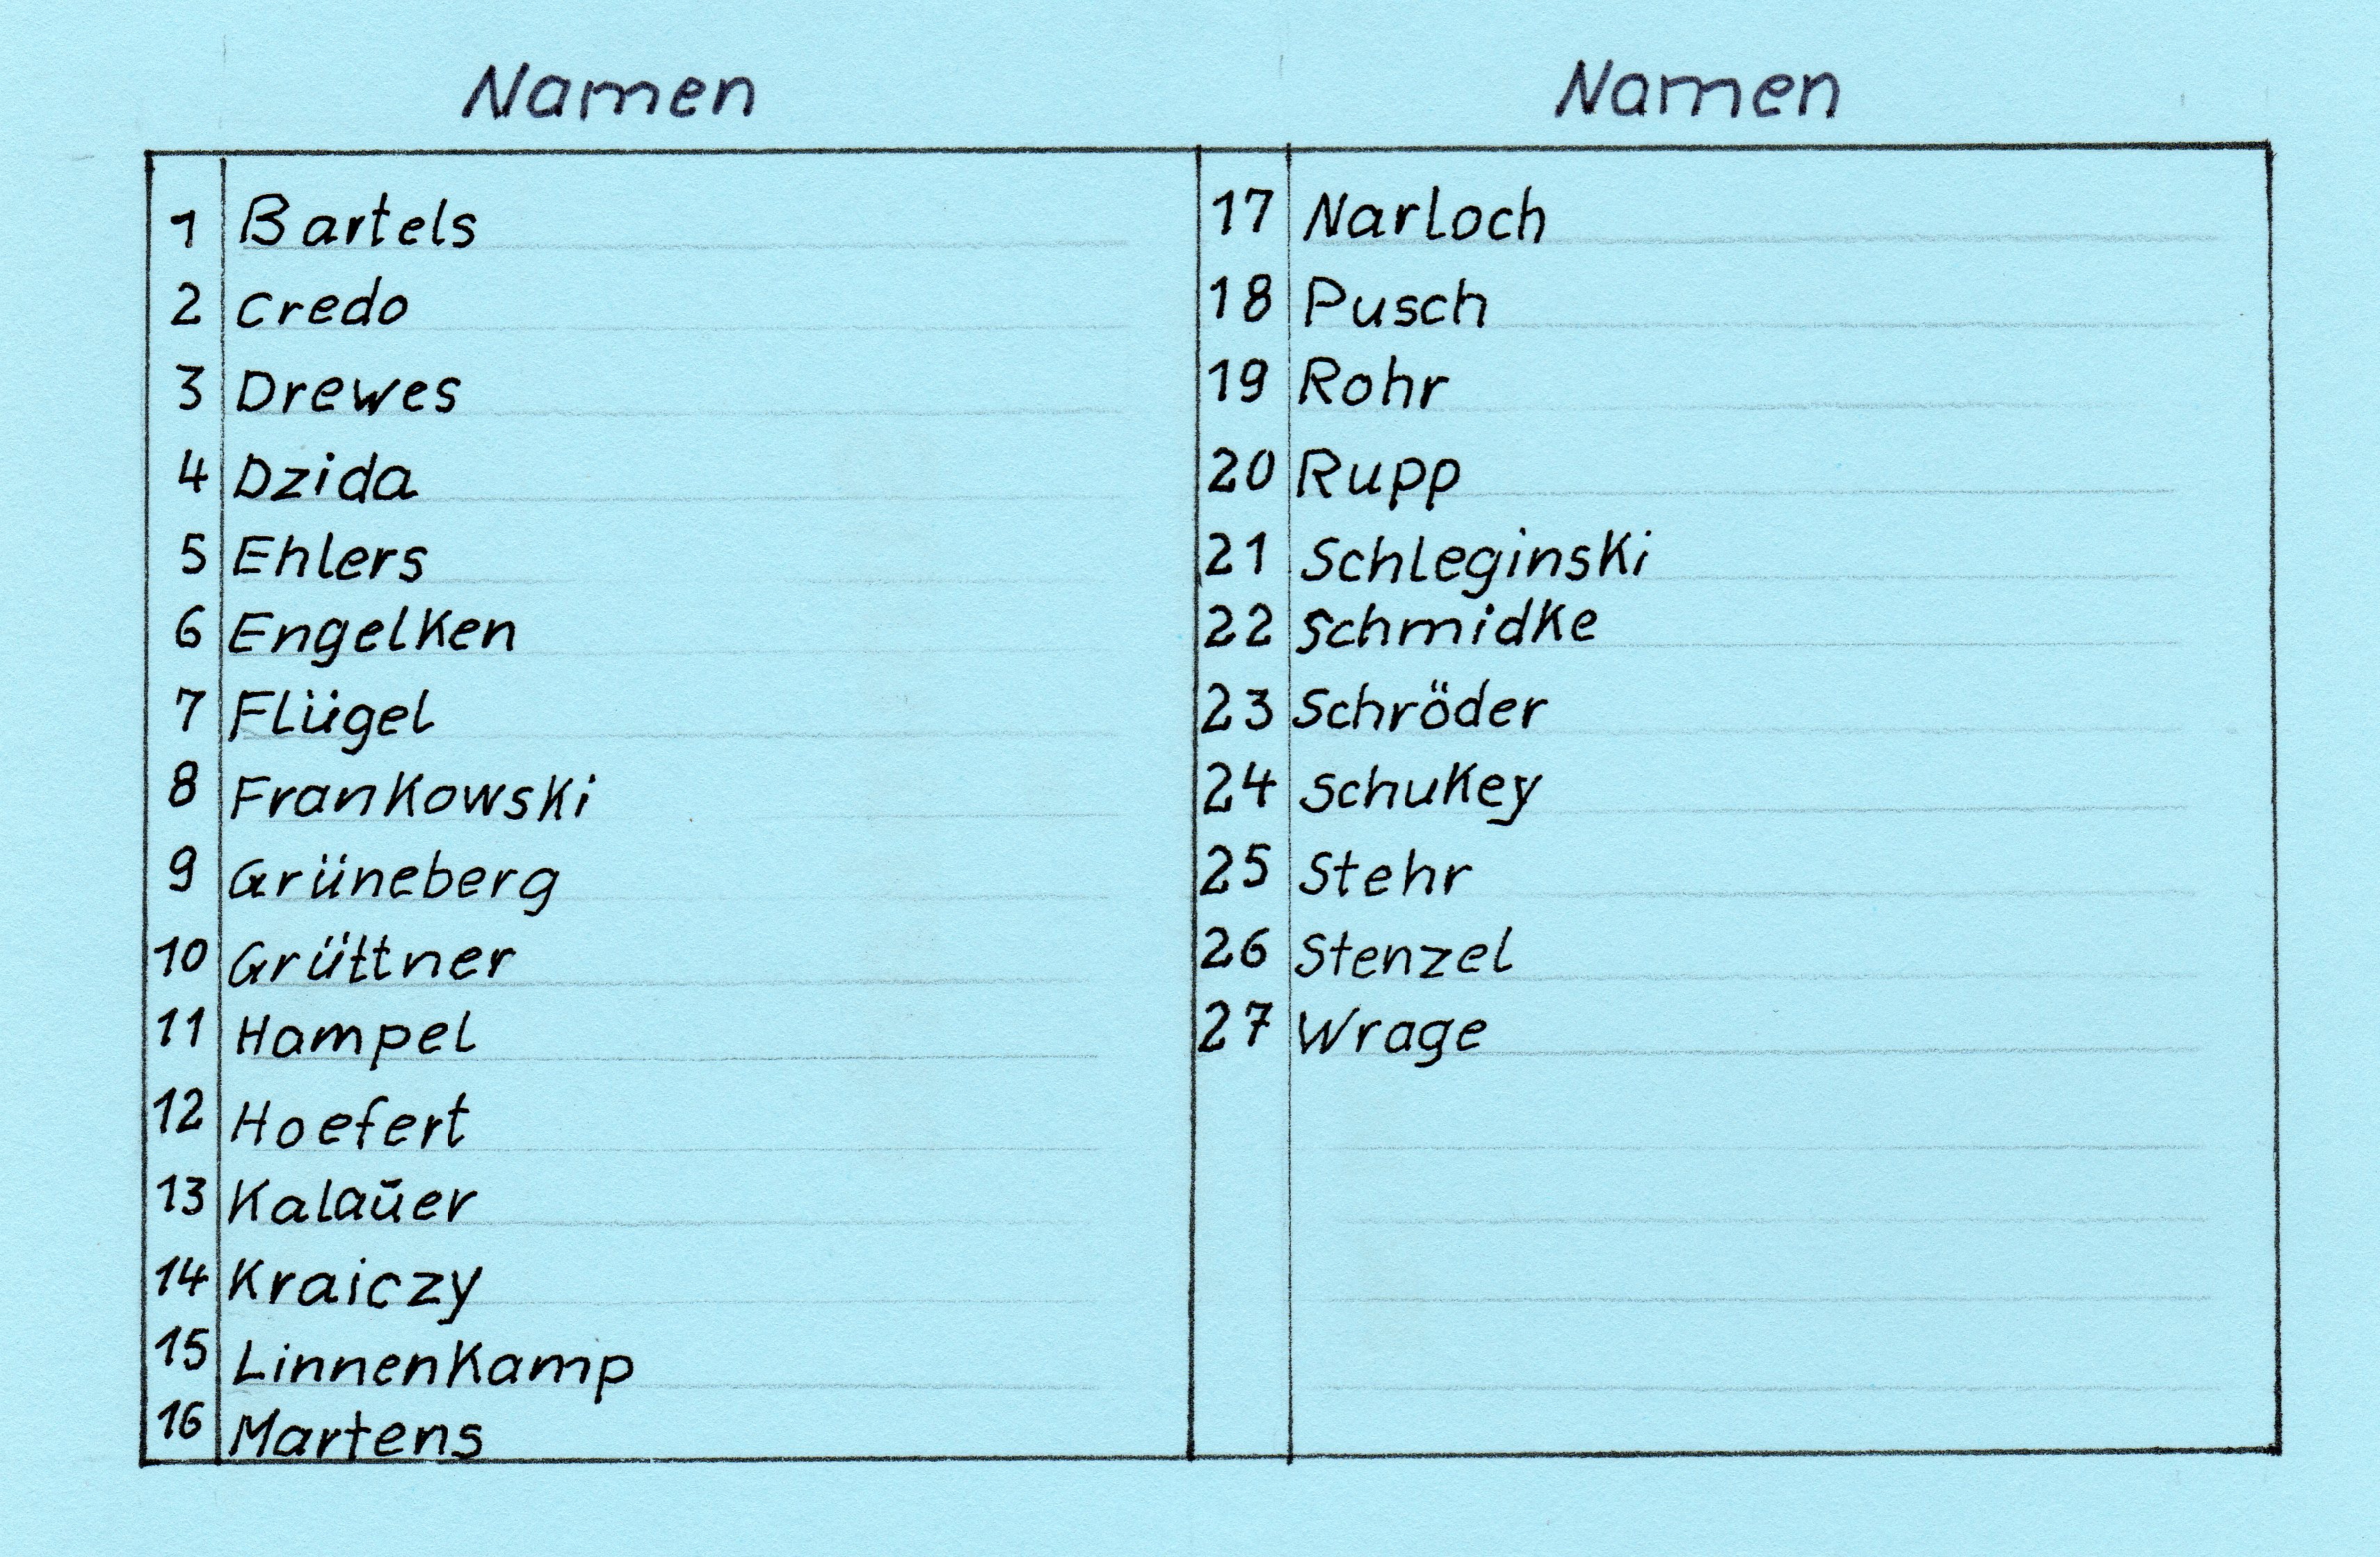 Namen
1 Bartels
2 Credo
3 Drewes
4 Dzida
5 Ehlers
6 Engelken
7 Flügel
8 Frankowski
9 Grüneberg
10 Grüttner
11 Hampel
12 Hoefert
13 Kalaūer
14 Kraiczy
15 Linnenkamp
16 Martens
Namen
17 Narloch
18 Pusch
19 Rohr
20 Rupp
21 Schleginski
22 Schmidke
23 Schröder
24 Schukey
25 Stehr
26 Stenzel
27 Wrage